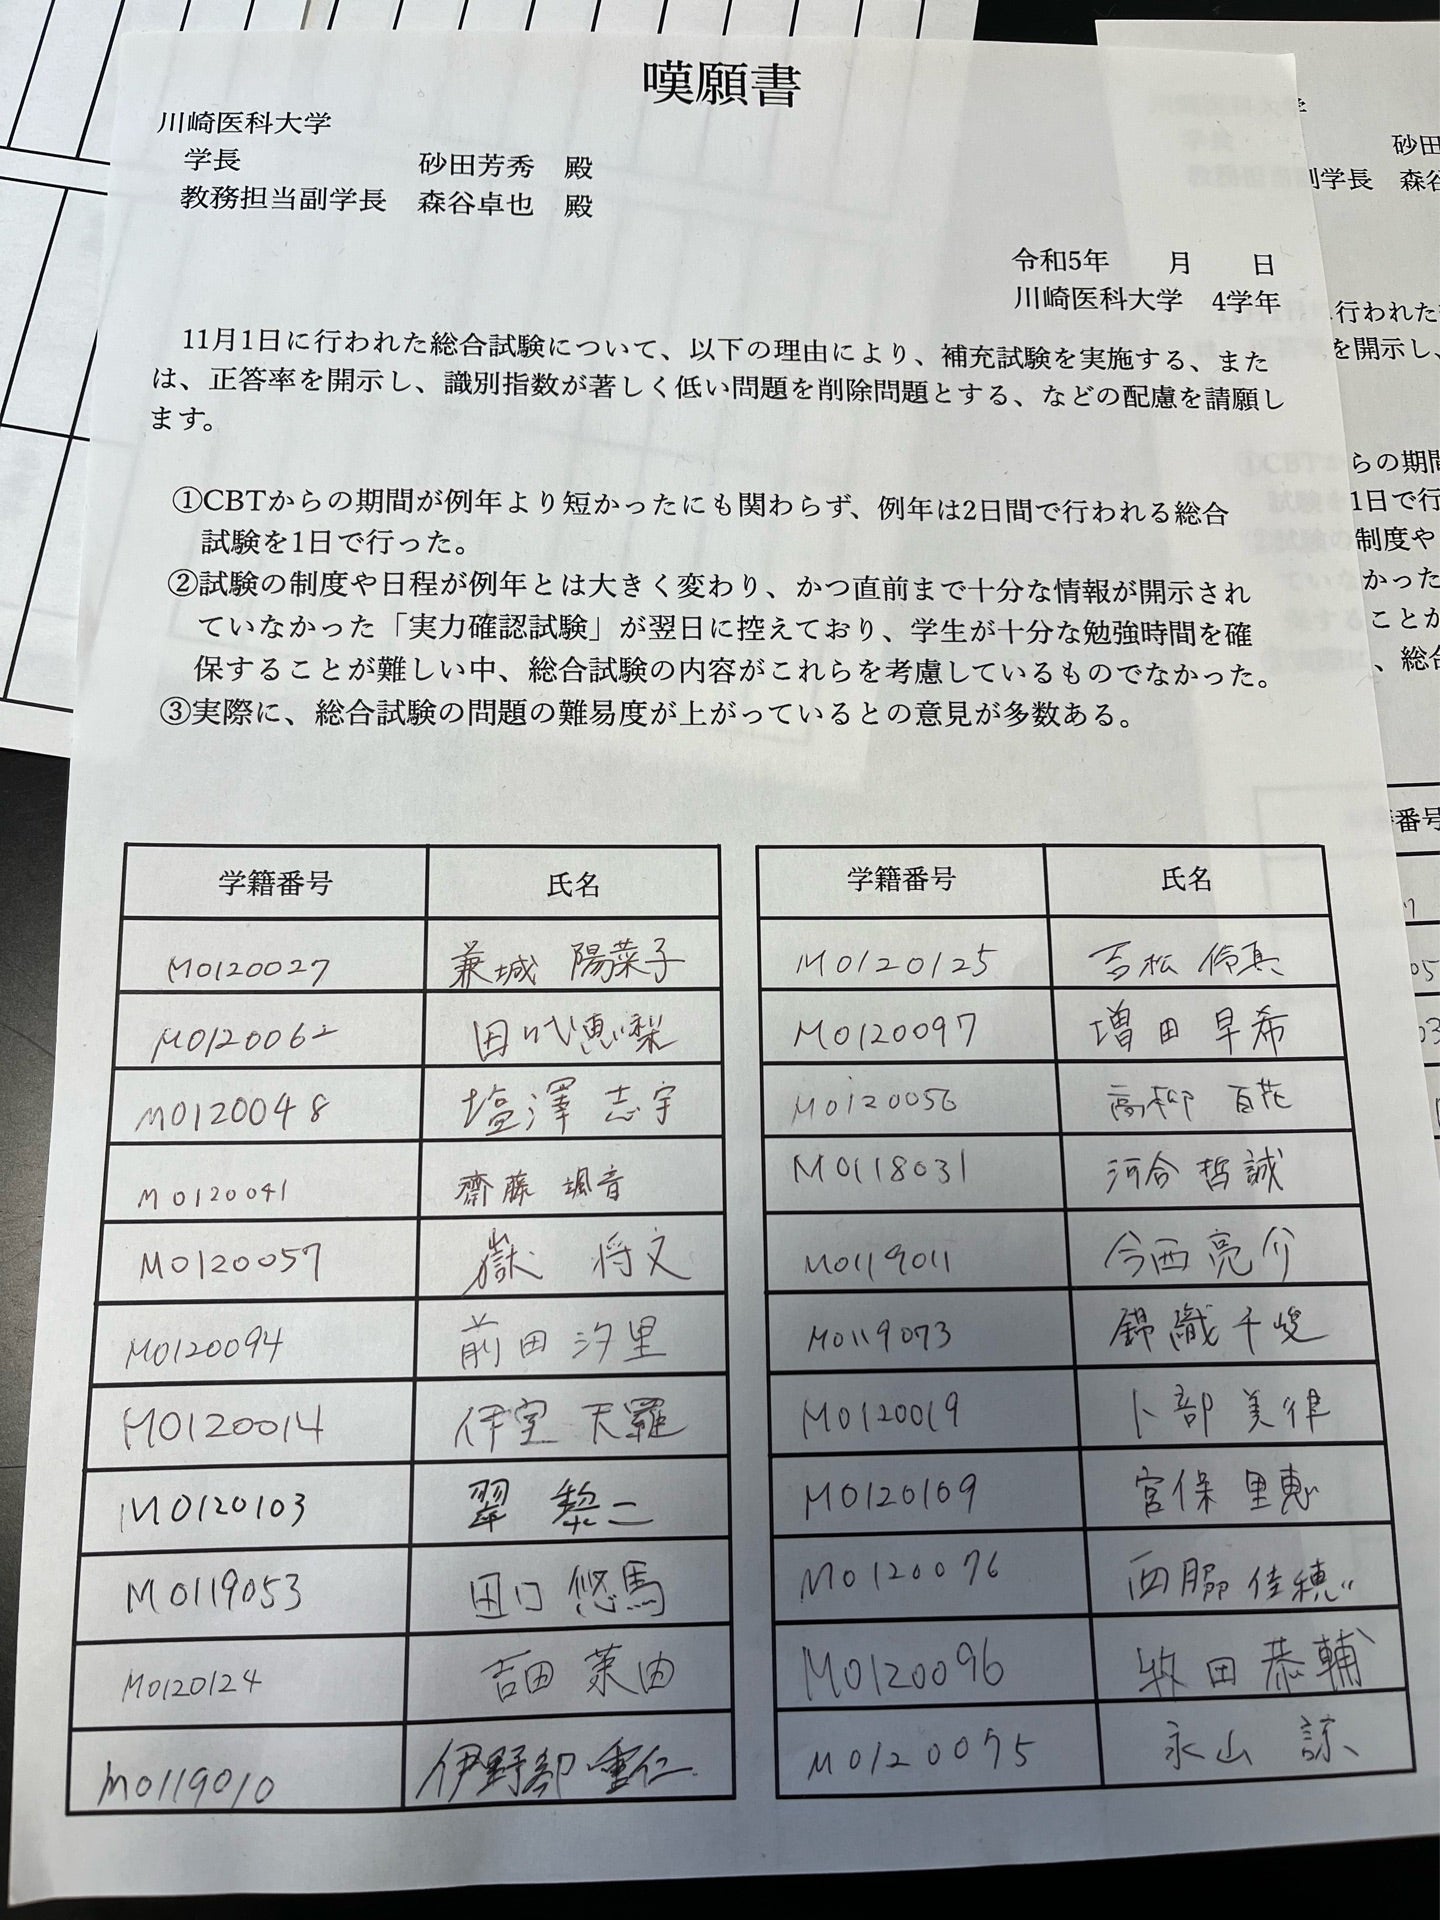 嘆願書
川崎医科大学
学長 砂田芳秀 殿
教務担当副学長 森谷卓也 殿
令和5年 月 日
川崎医科大学 4学年
11月1日に行われた総合試験について、以下の理由により、補充試験を実施する、また
は、正答率を開示し、識別指数が著しく低い問題を削除問題とする、などの配慮を請願し
ます。
①CBTからの期間が例年より短かったにも関わらず、例年は2日間で行われる総合
試験を1日で行った。
②試験の制度や日程が例年とは大きく変わり、かつ直前まで十分な情報が開示され
ていなかった「実力確認試験」が翌日に控えており、学生が十分な勉強時間を確
保することが難しい中、総合試験の内容がこれらを考慮しているものでなかった。
③実際に、総合試験の問題の難易度が上がっているとの意見が多数ある。
学籍番号 氏名
M0120027 兼城 陽菜子
M0120062 田代 恵梨
M0120048 塩澤 志宇
M0120041 齋藤 颯音
M0120057 嶽 将文
M0120094 前田 汐里
M0120014 伊室 天羅
M0120103 翠 黎二
M0119053 田口 悠馬
M0120124 吉田 茉由
M0119010 伊野部 重仁
学籍番号 氏名
M0120125 吉松 伶真
M0120097 増田 早希
M0120056 高柳 百花
M0118031 河合 哲誠
M0119011 今西 亮介
M0119073 錦織 千峻
M0120019 卜部 美律
M0120109 宮保 里恵
M0120076 西脇 佳穂
M0120096 牧田 恭輔
M0120075 永山 諒
砂田
副学長 森谷
行われた
を開示し、
らの期間
1日で行
制度や
かった
ことが
、総合
番号